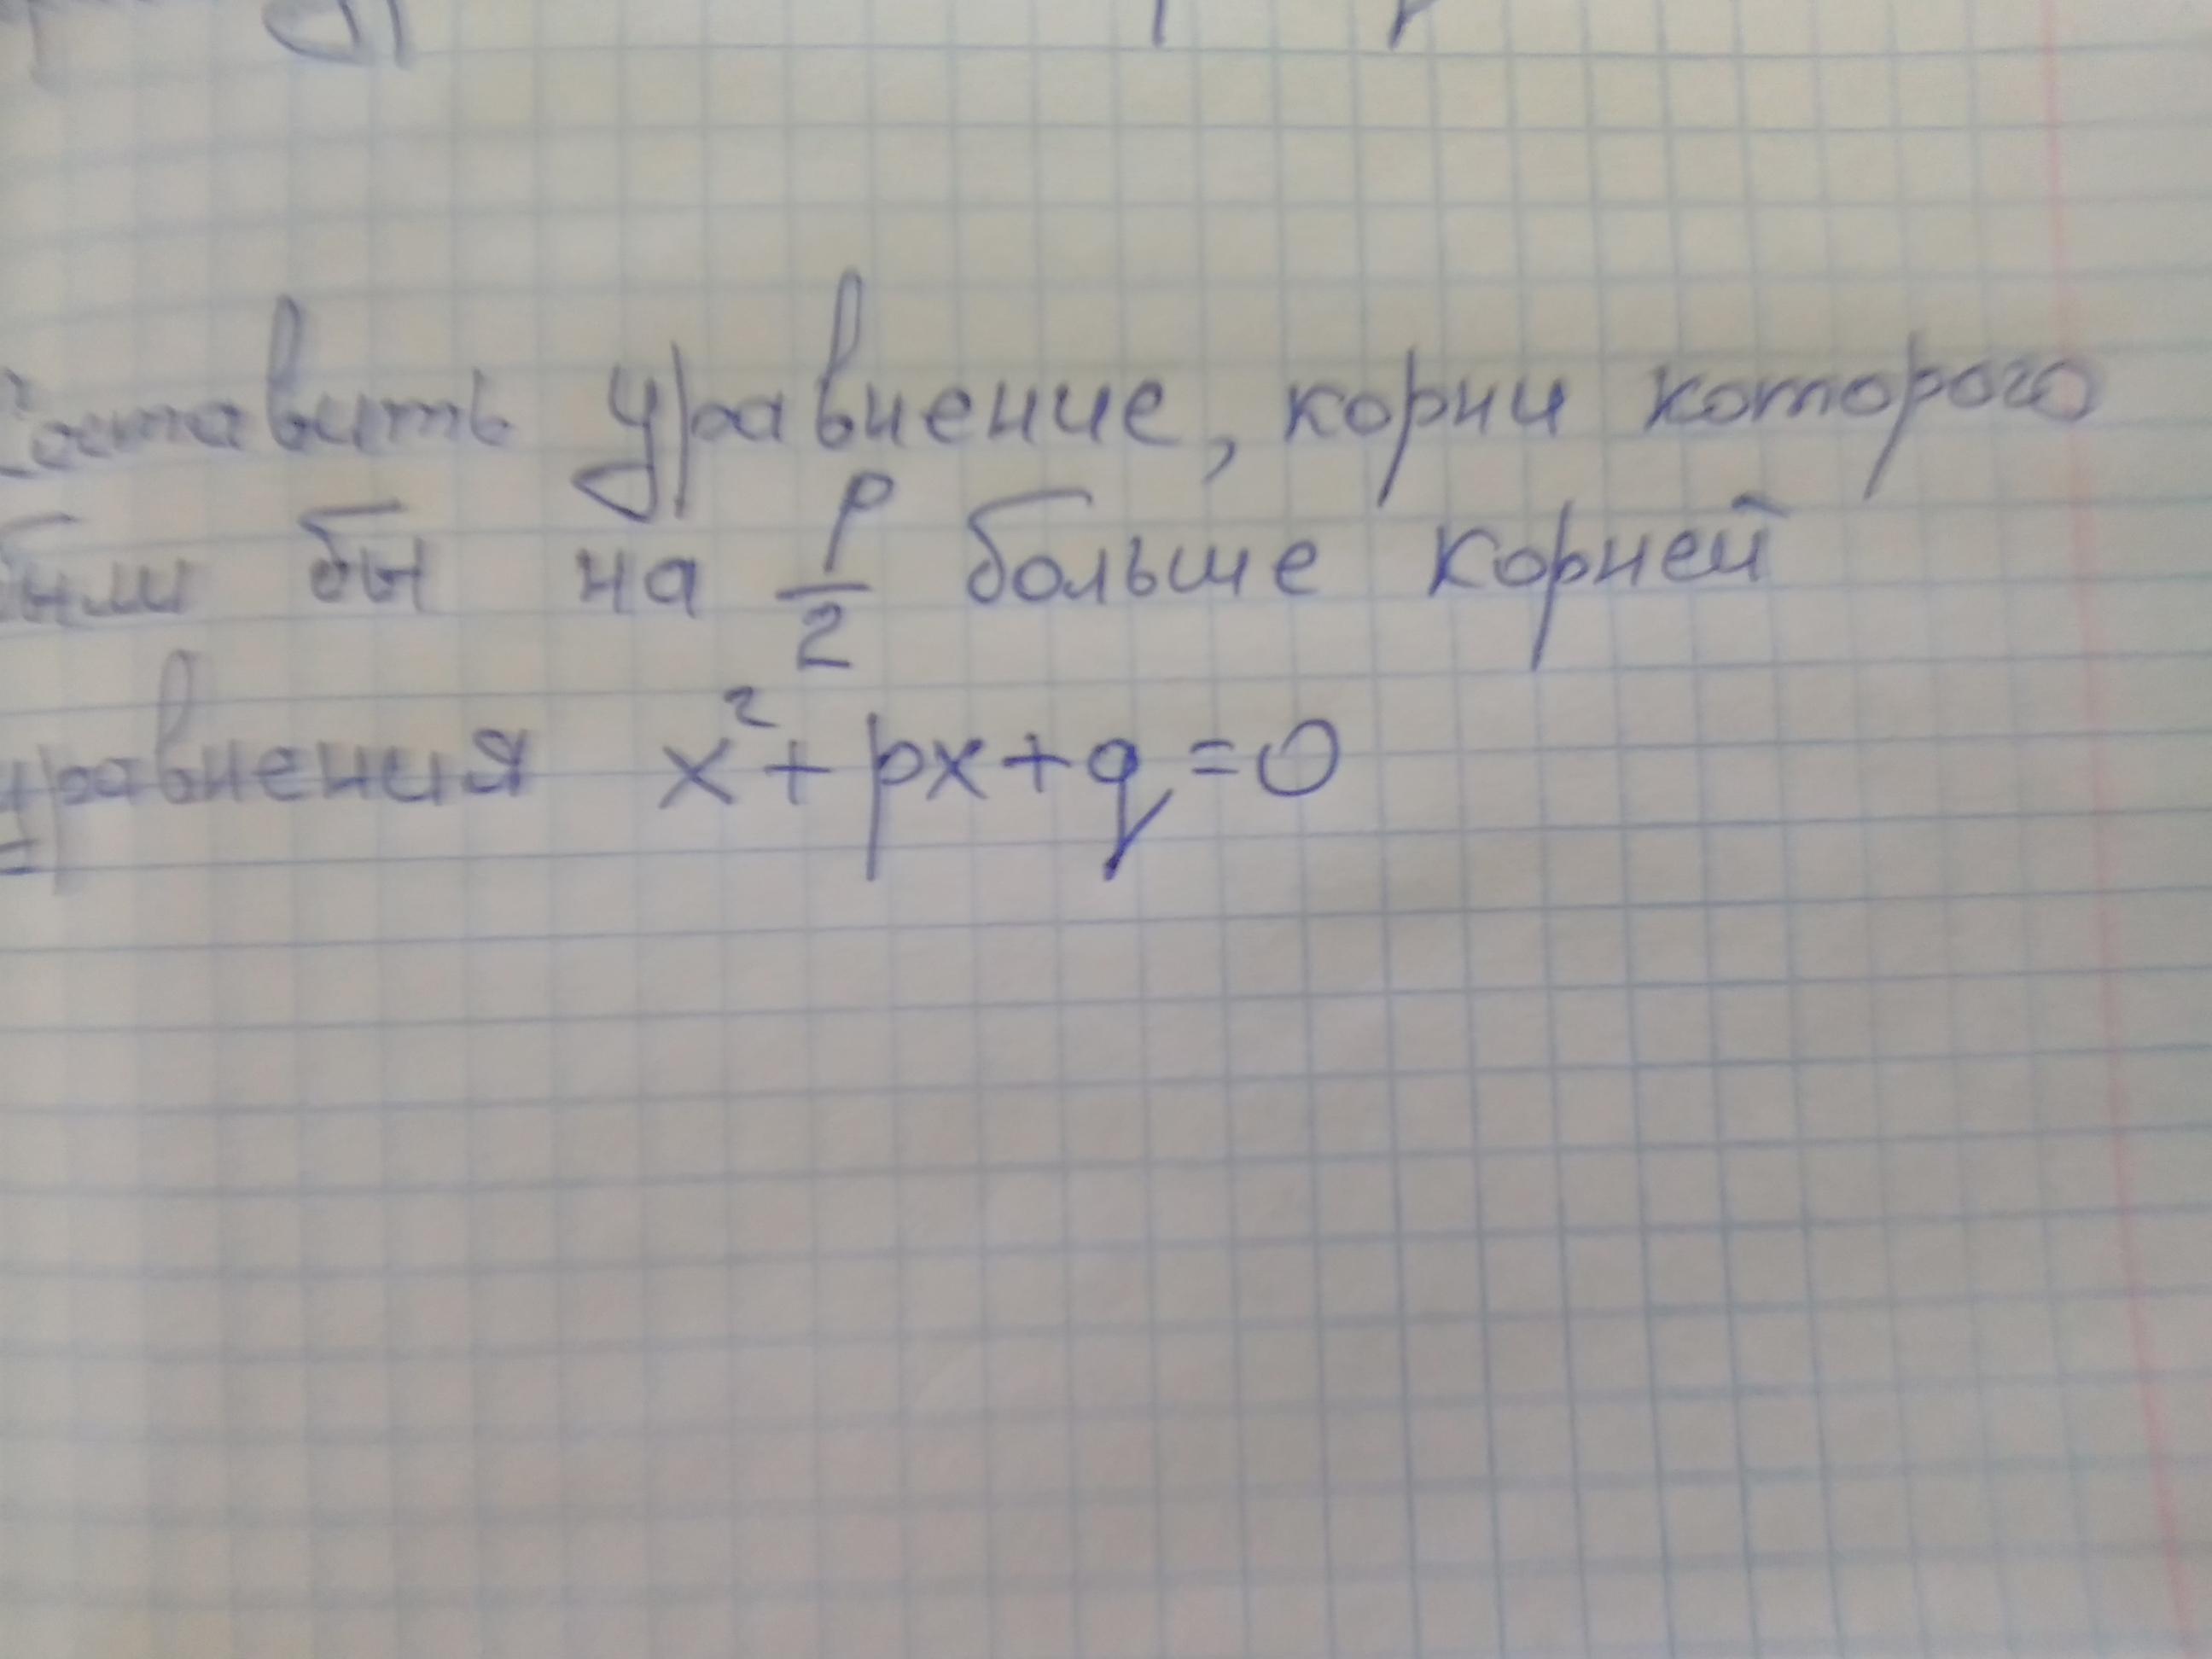 Составить уравнение, корни которого
были бы на p/2 больше корней
уравнения x² + px + q = 0